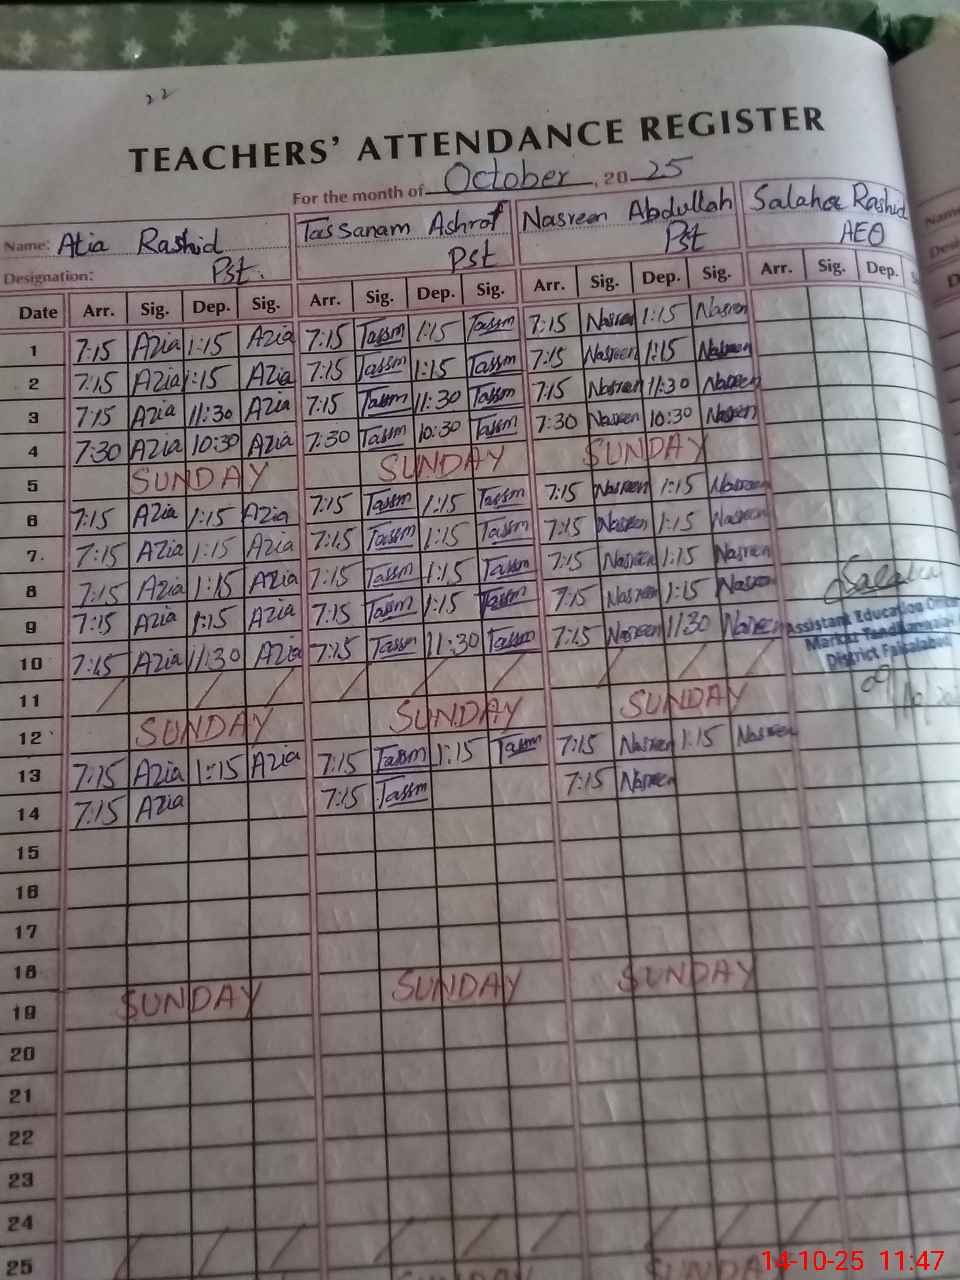 22
TEACHERS' ATTENDANCE REGISTER
For the month of October, 20 25
Name: Atia Rashid Tassanam Ashrof Nasreen Abdullah Salaha Rashid
Designation: Pst. Pst Pst AEO
Date Arr. Sig. Dep. Sig. Arr. Sig. Dep. Sig. Arr. Sig. Dep. Sig. Arr. Sig. Dep.
1 7:15 Azia 1:15 Azia 7:15 Tassm 1:15 Tassm 7:15 Nasreen 1:15 Nasreen
2 7:15 Azia 1:15 Azia 7:15 Tassm 1:15 Tassm 7:15 Nasreen 1:15 Nasreen
3 7:15 Azia 11:30 Azia 7:15 Tassm 11:30 Tassm 7:15 Nasreen 11:30 Nasreen
4 7:30 Azia 10:30 Azia 7:30 Tassm 10:30 Tassm 7:30 Nasreen 10:30 Nasreen
5 SUNDAY SUNDAY SUNDAY
6 7:15 Azia 1:15 Azia 7:15 Tassm 1:15 Tassm 7:15 Nasreen 1:15 Nasreen
7. 7:15 Azia 1:15 Azia 7:15 Tassm 1:15 Tassm 7:15 Nasreen 1:15 Nasreen
8 7:15 Azia 1:15 Azia 7:15 Tassm 1:15 Tassm 7:15 Nasreen 1:15 Nasreen
9 7:15 Azia 1:15 Azia 7:15 Tassm 1:15 Tassm 7:15 Nasreen 1:15 Nasreen
10 7:15 Azia 11:30 Azia 7:15 Tassm 11:30 Tassm 7:15 Nasreen 11:30 Nasreen
Assistant Education
Markaz
District Faisalabad
09
11
12 SUNDAY SUNDAY SUNDAY
13 7:15 Azia 1:15 Azia 7:15 Tassm 1:15 Tassm 7:15 Nasreen 1:15 Nasreen
14 7:15 Azia 7:15 Tassm 7:15 Nasreen
15
16
17
18
19 SUNDAY SUNDAY SUNDAY
20
21
22
23
24
25
14-10-25 11:47